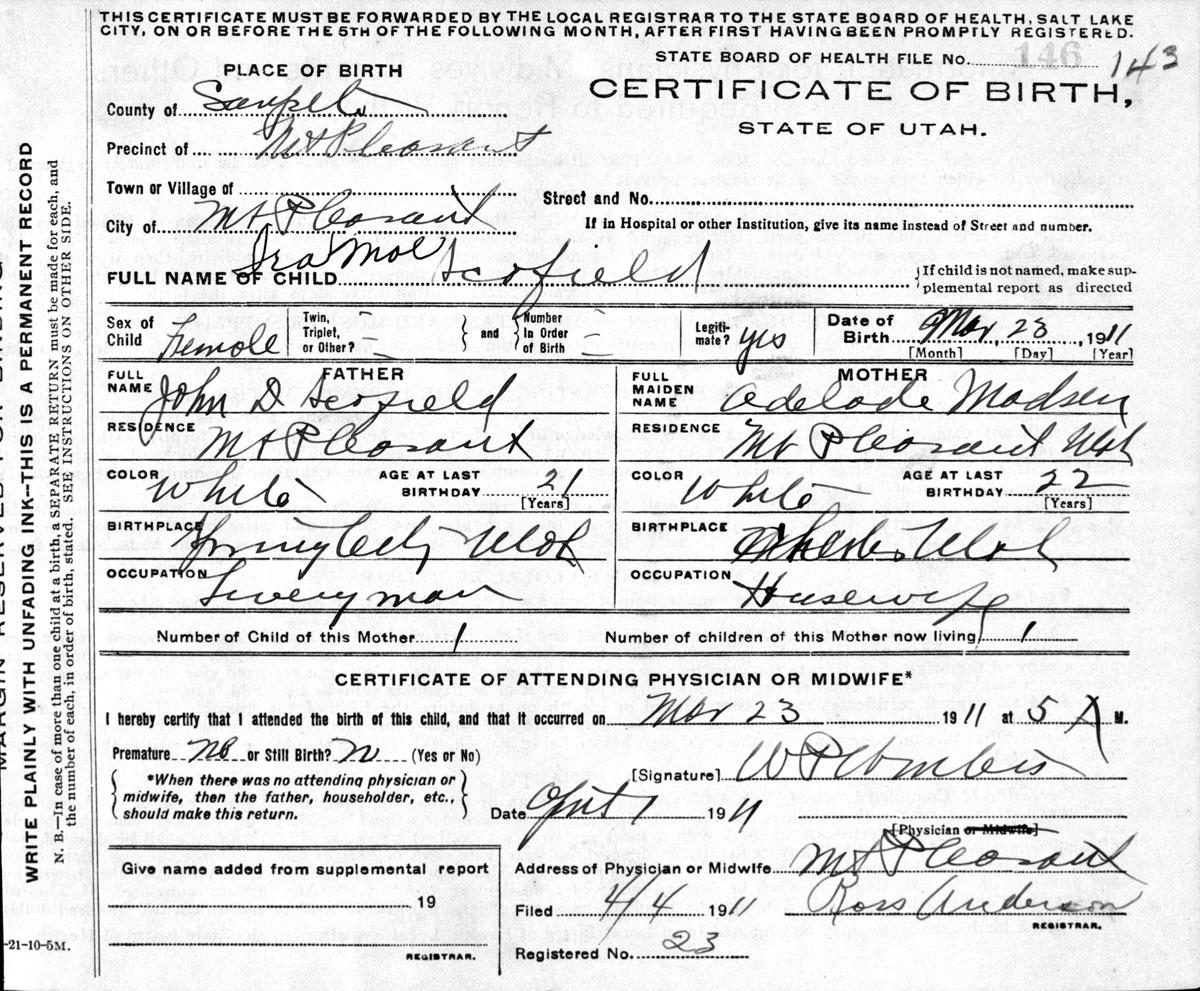 THIS CERTIFICATE MUST BE FORWARDED BY THE LOCAL REGISTRAR TO THE STATE BOARD OF HEALTH, SALT LAKE
CITY, ON OR BEFORE THE 5TH OF THE FOLLOWING MONTH, AFTER FIRST HAVING BEEN PROMPTLY REGISTERED.
STATE BOARD OF HEALTH FILE No. 146 143
PLACE OF BIRTH
CERTIFICATE OF BIRTH,
STATE OF UTAH.
County of Sanpete
Precinct of Mt Pleasant
Town or Village of
Street and No.
City of Mt Pleasant
If in Hospital or other Institution, give its name instead of Street and number.
FULL NAME OF CHILD Scofield
If child is not named, make sup-
plemental report as directed
Sex of Child Female
Twin, Triplet, or Other? –
and
Number in Order of Birth –
Legiti-mate? yes
Date of Birth Mar, 23, 1911
[Month] [Day] [Year]
FATHER
FULL NAME John D Scofield
RESIDENCE Mt Pleasant
COLOR White AGE AT LAST BIRTHDAY 21
[Years]
BIRTHPLACE Spring City Utah
OCCUPATION Liveryman
MOTHER
FULL MAIDEN NAME Adelade Madsen
RESIDENCE Mt Pleasant Utah
COLOR White AGE AT LAST BIRTHDAY 22
[Years]
BIRTHPLACE Utah
OCCUPATION Husewife
Number of Child of this Mother 1 Number of children of this Mother now living 1
CERTIFICATE OF ATTENDING PHYSICIAN OR MIDWIFE*
I hereby certify that I attended the birth of this child, and that it occurred on Mar 23 1911 at 5 A M.
Premature No or Still Birth? N (Yes or No)
*When there was no attending physician or
midwife, then the father, householder, etc.,
should make this return.
[Signature]
Date 1911
[Physician or Midwife]
Give name added from supplemental report
19
REGISTRAR.
Address of Physician or Midwife Mt Pleasant
Filed 4/4 1911 Ross Anderson
REGISTRAR.
Registered No. 23
MARGIN RESERVED FOR BINDING
WRITE PLAINLY WITH UNFADING INK--THIS IS A PERMANENT RECORD
N. B.—In case of more than one child at birth, a SEPARATE RETURN must be made for each, and
the number of each, in order of birth, stated. SEE INSTRUCTIONS ON OTHER SIDE.
-21-10-5M.